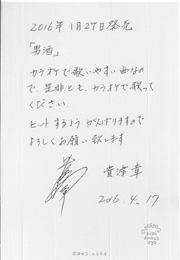 2016年 1月27日発売
「男酒」
カラオケで歌いやすい曲なの
で 是非とも、カラオケで歌って
ください。
ヒットするよう がんばりますので
よろしくお願い致します。
貴澤章
2016.4.17